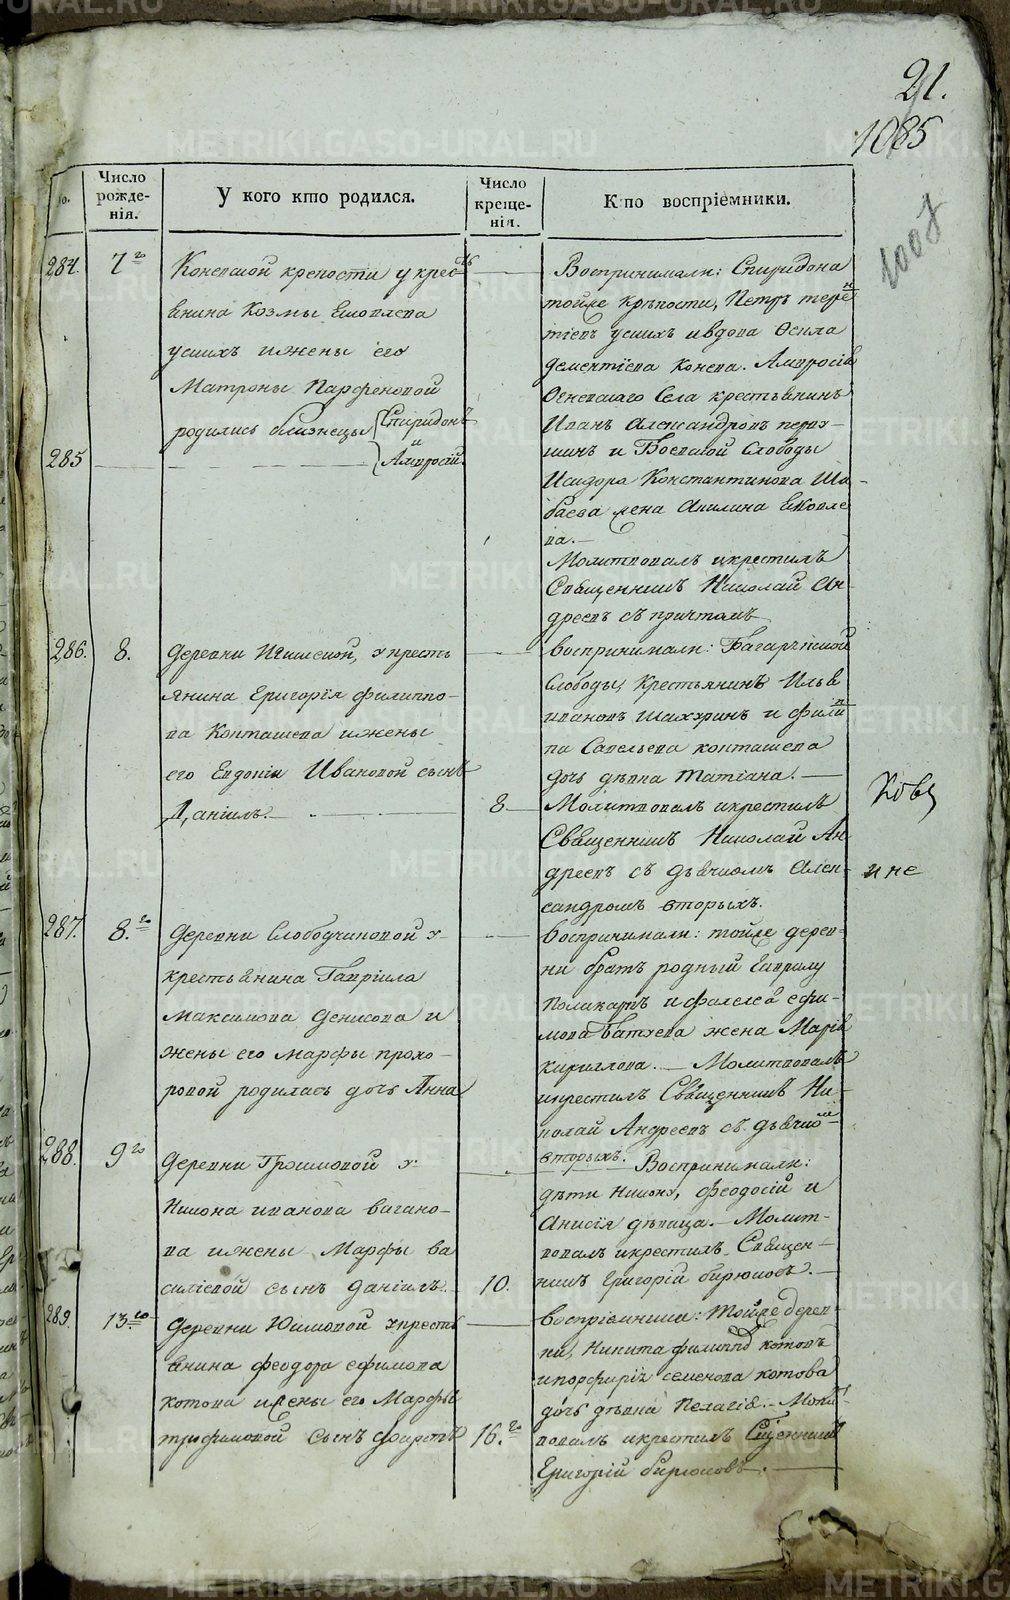 21.
1085
1007
No.
Число рожденія.
У кого кто родился.
Число крещенія.
Кто воспріемники.
284. 7го
Коневской крепости у крес
янина Козмы Яковлева
ускихъ и жены его
Матроны Парфеновой
родились близнецы Спиридонъ
и
285
Амвросій.
Воспринимали: Спиридона
тойже крѣпости, Петръ терен
тіевъ ускихъ и вдова Осипа
дементіева Конева. Амвросія
Огневскаго Села крестьянинъ
Иванъ Александровъ
и Боевской Слободы
Исидора Константинова Ша
баева жена Акилина Яковле
ва.
Молитвовалъ и крестилъ
Священникъ Николай Ан
дреевъ съ причтомъ
286. 8.
Деревни у кресть
янина Григорія филиппо-
ва Конташева и жены
его Евдокіи Ивановой сынъ
Даніилъ.
8
Воспринимали: Багаряцкой
Слободы, Крестьянинъ Илья
ивановъ и фили
па Савельева конташева
дочь дѣвка татіана.
Молитвовалъ и крестилъ
Священникъ Николай Ан
дреевъ съ дьячкомъ Алек-
сандромъ вторыхъ.
и не
287. 8.го
Деревни Слободчиковой у
крестьянина Гавріила
Максимова Денисова и
жены его марфы прохо-
ровой родилась дочь Анна
Воспринимали: тойже дерев-
ни братъ родный Гаврилу
Поликарпъ и фалелеа ефи-
мова Батуева жена Марія
кириллова. Молитвовалъ
и крестилъ Священникъ Ни-
колай Андреевъ съ дьячкомъ
вторыхъ.
288. 9го
Деревни у
Никона иванова вагано-
ва и жены Марфы ва
силіевой сынъ даніилъ.
10.
Воспринимали:
дѣти Никона, Феодосій и
Анисія дѣвица. Молит-
вовалъ и крестилъ Священ-
никъ Григорій бирюковъ.
289. 13го
Деревни Юшковой у кресть
янина феодора ефимова
котова и жены его Марфы
трифимовой сынъ
16.го
воспріемники: Тойже дерев-
ни, Никита филиппов котовъ
и порфирія семенова котова
дочь дѣвка Пелагія. Молит
вовалъ и крестилъ Священникъ
Григорій бирюковъ.
METRIKI.GASO-URAL.RU